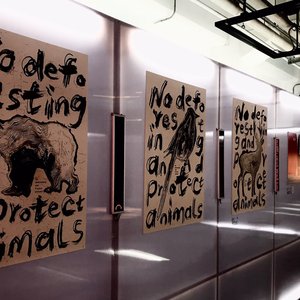 No defo
resting
protect
imals
No defo
rest
ing
and
protect
animals
No defo
rest
ing
and
protect
animals